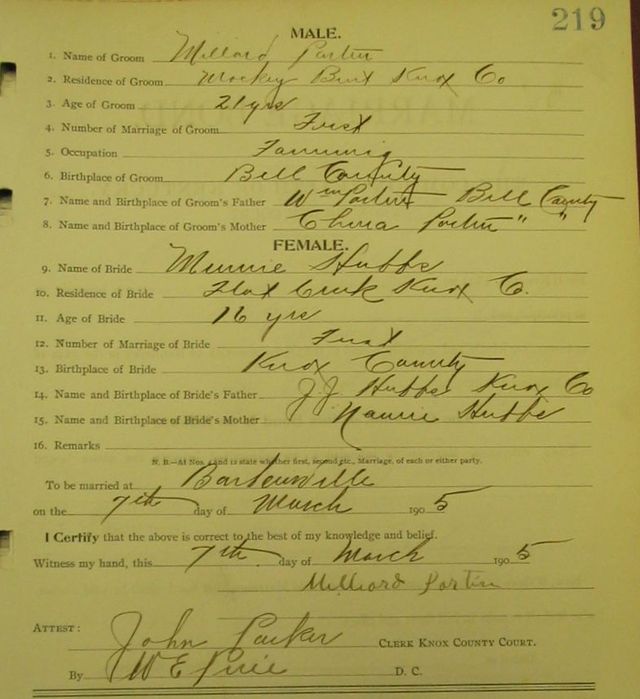 219
MALE.
1. Name of Groom Millard Partin
2. Residence of Groom Knox Co
3. Age of Groom 21 yrs
4. Number of Marriage of Groom First
5. Occupation Farming
6. Birthplace of Groom Bell County
7. Name and Birthplace of Groom's Father Wm Partin Bell County
8. Name and Birthplace of Groom's Mother Partin " "
FEMALE.
9. Name of Bride Minnie Hubbs
10. Residence of Bride Flat Creek Knox Co.
11. Age of Bride 16 yrs
12. Number of Marriage of Bride First
13. Birthplace of Bride Knox County
14. Name and Birthplace of Bride's Father J J Hubbs Knox Co
15. Name and Birthplace of Bride's Mother Nannie Hubbs
16. Remarks
N. B.—At Nos. 4 and 12 state whether first, second, etc., Marriage, of each or either party.
To be married at Barbourville
on the 7th day of March 1905
I Certify that the above is correct to the best of my knowledge and belief.
Witness my hand, this 7th day of March 1905
Milliard Partin
ATTEST:
John Parker CLERK KNOX COUNTY COURT.
By W E D. C.